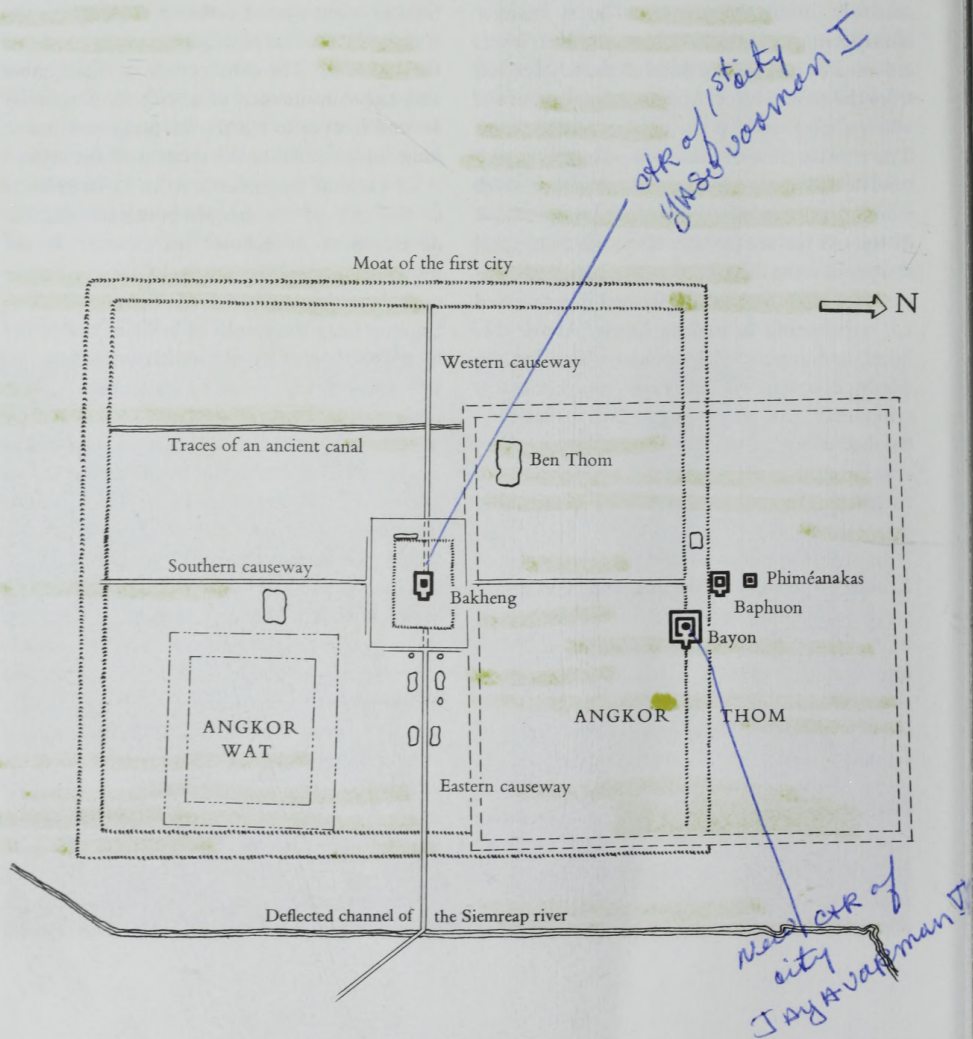 ctr of 1st city
Yasovarman I
Moat of the first city
N
Western causeway
Traces of an ancient canal
Ben Thom
Southern causeway
Bakheng
Phiméanakas
Baphuon
Bayon
ANGKOR THOM
ANGKOR
WAT
Eastern causeway
Deflected channel of the Siemreap river
New ctr of
city